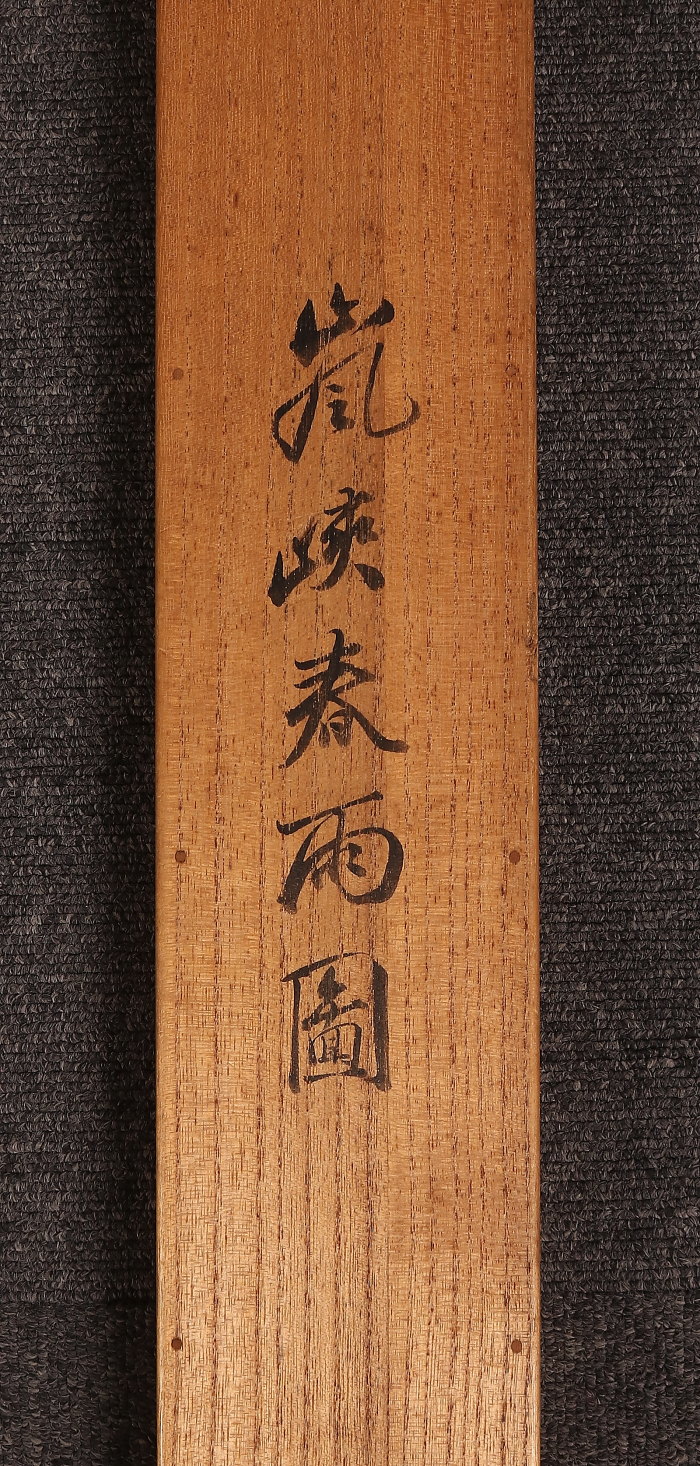 嵐峽春雨圖